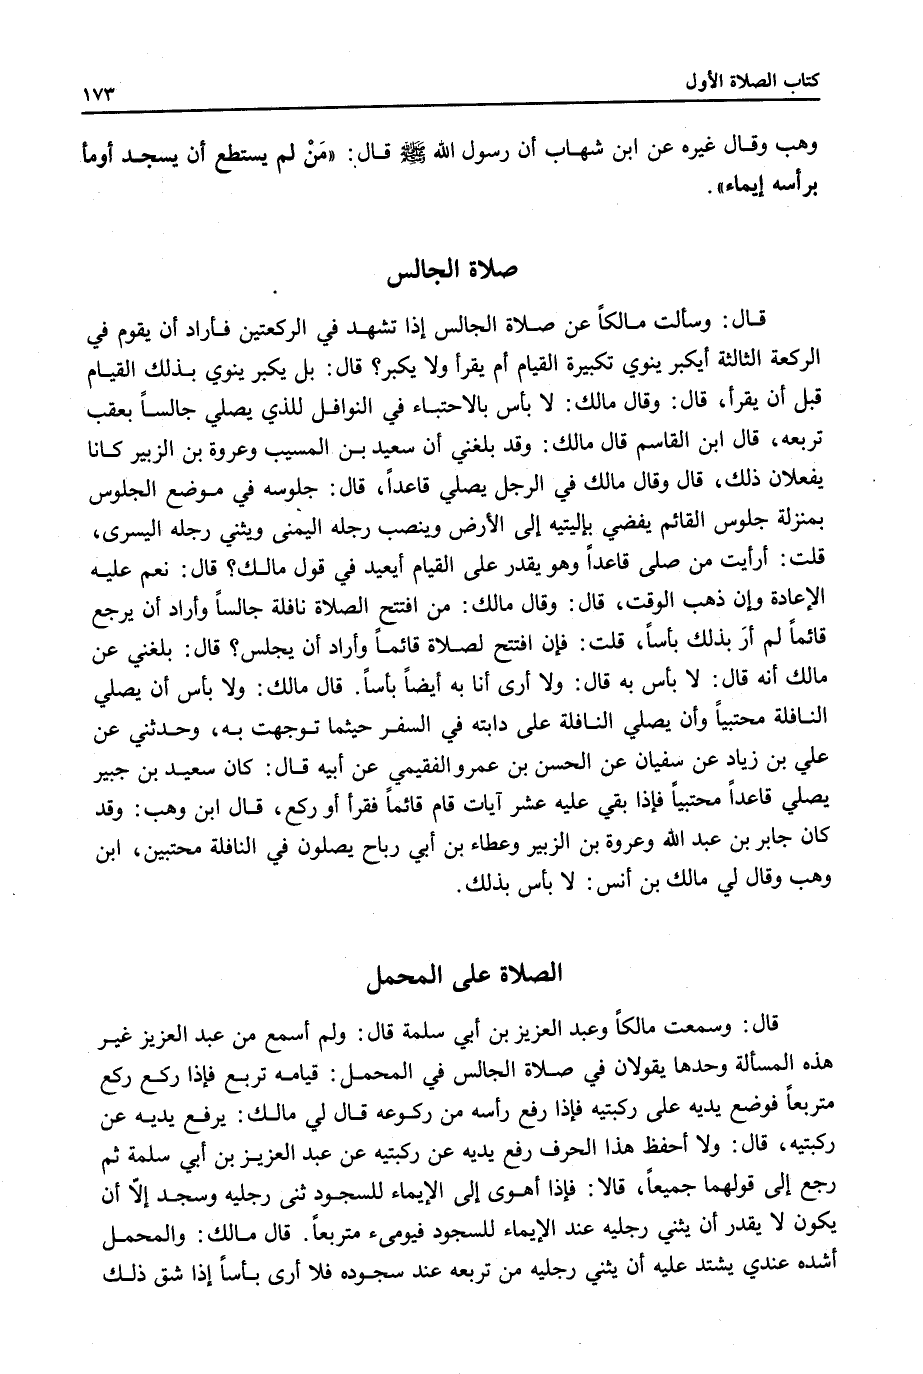 كتاب الصلاة الأول
١٧٣
وهب وقال غيره عن ابن شهاب أن رسول الله ﷺ قال: «مَنْ لم يستطع أن يسجد أومأ
برأسه إيماء».
صلاة الجالس
قال: وسألت مالكاً عن صلاة الجالس إذا تشهد في الركعتين فأراد أن يقوم في
الركعة الثالثة أيكبر ينوي تكبيرة القيام أم يقرأ ولا يكبر؟ قال: بل يكبر ينوي بذلك القيام
قبل أن يقرأ، قال: وقال مالك: لا بأس بالاحتباء في النوافل للذي يصلي جالساً بعقب
تربعه، قال ابن القاسم قال مالك: وقد بلغني أن سعيد بن المسيب وعروة بن الزبير كانا
يفعلان ذلك، قال وقال مالك في الرجل يصلي قاعداً، قال: جلوسه في موضع الجلوس
بمنزلة جلوس القائم يفضي بإليتيه إلى الأرض وينصب رجله اليمنى ويثني رجله اليسرى،
قلت: أرأيت من صلى قاعداً وهو يقدر على القيام أيعيد في قول مالك؟ قال: نعم عليه
الإعادة وإن ذهب الوقت، قال: وقال مالك: من افتتح الصلاة نافلة جالساً وأراد أن يرجع
قائماً لم أرَ بذلك بأساً، قلت: فإن افتتح لصلاة قائماً وأراد أن يجلس؟ قال: بلغني عن
مالك أنه قال: لا بأس به قال: ولا أرى أنا به أيضاً بأساً. قال مالك: ولا بأس أن يصلي
النافلة محتبياً وأن يصلي النافلة على دابته في السفر حيثما توجهت به، وحدثني عن
علي بن زياد عن سفيان عن الحسن بن عمرو الفقيمي عن أبيه قال: كان سعيد بن جبير
يصلي قاعداً محتبياً فإذا بقي عليه عشر آيات قام قائماً فقرأ أو ركع، قال ابن وهب: وقد
كان جابر بن عبد الله وعروة بن الزبير وعطاء بن أبي رباح يصلون في النافلة محتبين، ابن
وهب وقال لي مالك بن أنس: لا بأس بذلك.
الصلاة على المحمل
قال: وسمعت مالكاً وعبد العزيز بن أبي سلمة قال: ولم أسمع من عبد العزيز غير
هذه المسألة وحدها يقولان في صلاة الجالس في المحمل: قيامه تربع فإذا ركع ركع
متربعاً فوضع يديه على ركبتيه فإذا رفع رأسه من ركوعه قال لي مالك: يرفع يديه عن
ركبتيه، قال: ولا أحفظ هذا الحرف رفع يديه عن ركبتيه عن عبد العزيز بن أبي سلمة ثم
رجع إلى قولهما جميعاً، قالا: فإذا أهوى إلى الإيماء للسجود ثنى رجليه وسجد إلاّ أن
يكون لا يقدر أن يثني رجليه عند الإيماء للسجود فيومىء متربعاً. قال مالك: والمحمل
أشده عندي يشتد عليه أن يثني رجليه من تربعه عند سجوده فلا أرى بأساً إذا شق ذلك